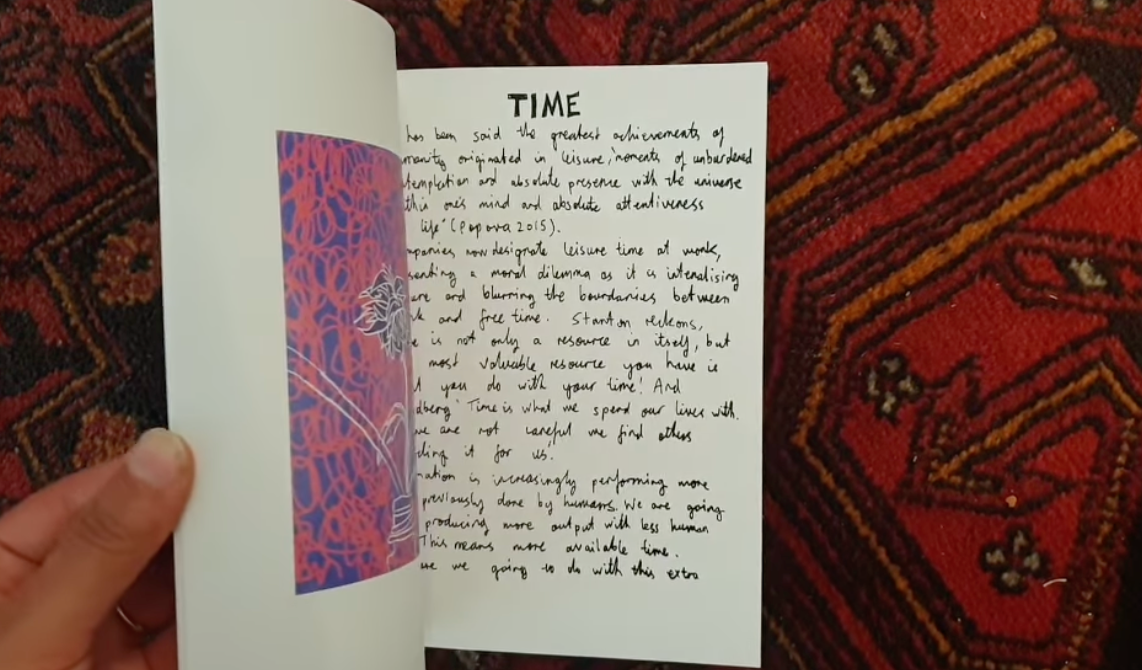 TIME
has been said the greatest achievements of
manity originated in leisure, 'moments of unburdened
templation and absolute presence with the universe
thin one's mind and absolute attentiveness
life' (Popova 2015).
mpanies now designate leisure time at work,
senting a moral dilemma as it is internalising
ure and blurring the boundaries between
k and free time. Stanton reckons,
e is not only a resource in itself, but
most valuable resource you have is
t you do with your time! And
dberg 'Time is what we spend our lives with.
we are not careful we find others
ding it for us.
mation is increasingly performing more
previously done by humans. We are going
producing more output with less human
This means more available time.
are we going to do with this extra